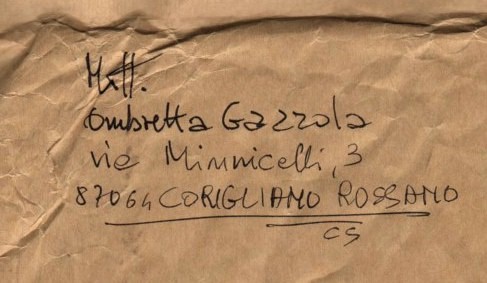 Mitt.
Ombretta Gazzola
via Minnicelli, 3
87064 CORIGLIANO ROSSANO
CS